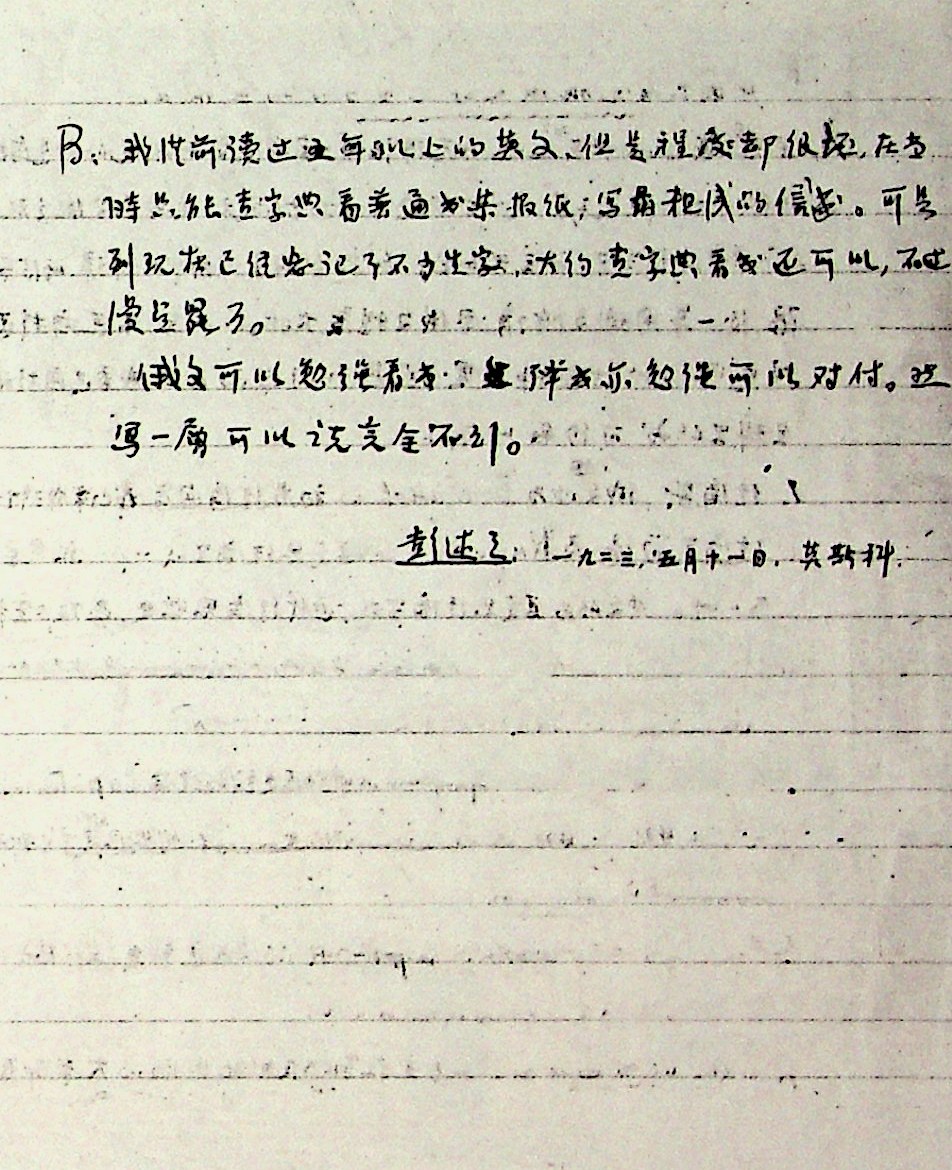 B. 我从前读过五年以上的英文，但是程度却很坏，在当
时只能查字典看普通书与报纸，写最粗浅的信。可是
到现在已经忘记了不少生字，大约查字典看书还可以，不过
慢是罢了。
俄文可以勉强看书，译书亦勉强可以对付。说
写一层可以说完全不行。
彭述之. 一九二三，五月十一日，莫斯科.